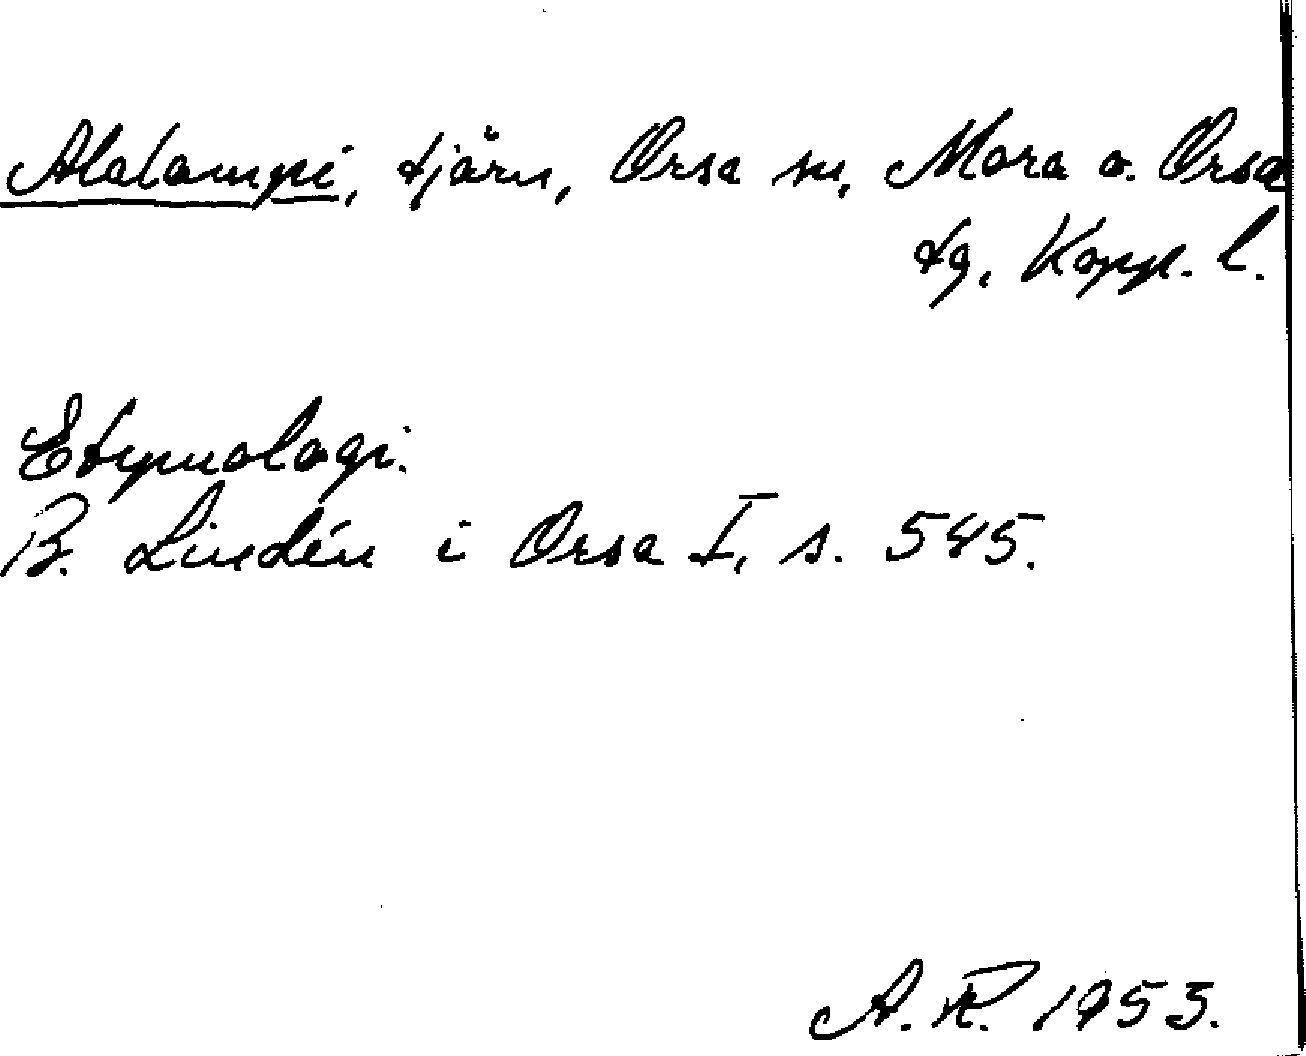 Alalampi, tjärn, Orsa sn, Mora o. Orsa
tg, Kopp. l.
Etymologi.
B. Lindén i Orsa I, s. 545.
A. R. 1953.